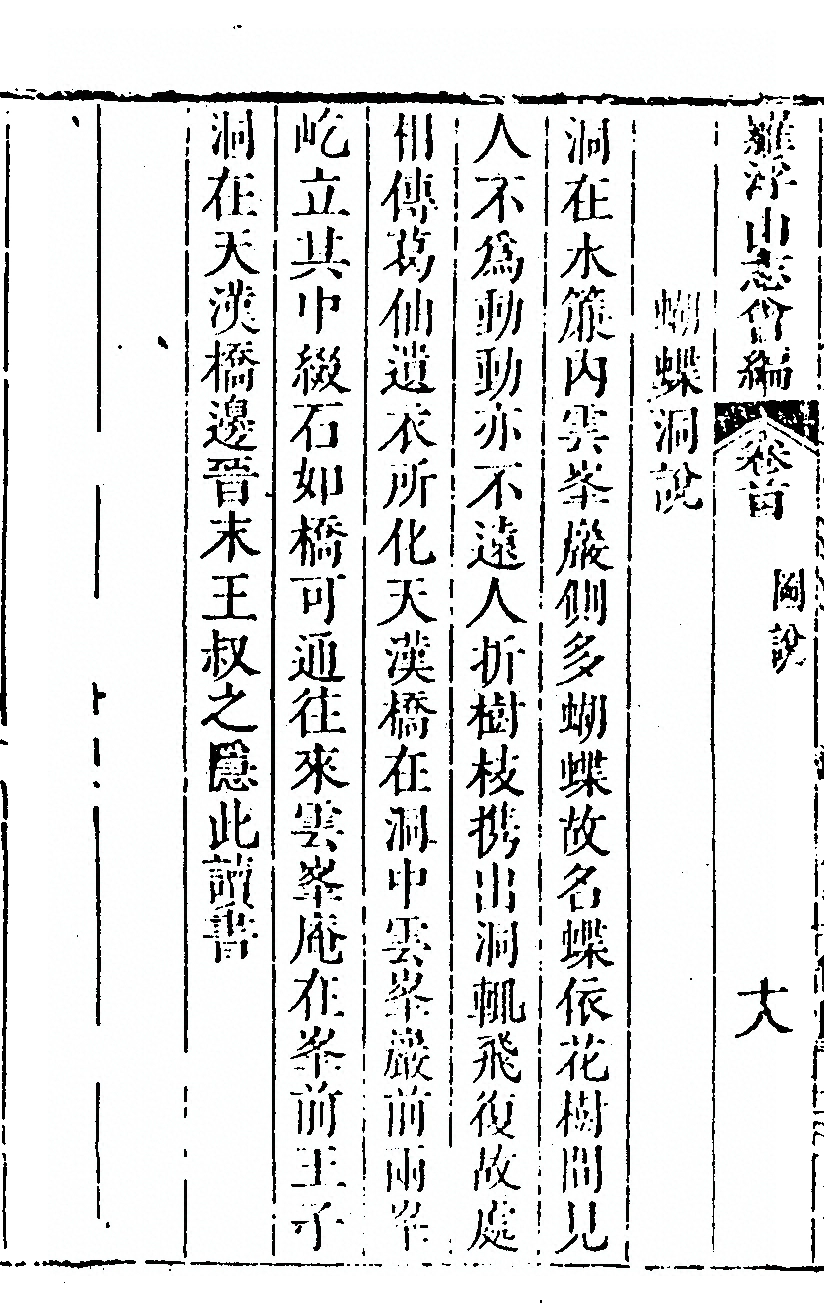 羅浮山志會編 卷首 圖說 十八
蝴蝶洞說
洞在水簾內雲峯巖側多蝴蝶故名蝶依花樹間見
人不爲動動亦不遠人折樹枝携出洞輒飛復故處
相傳葛仙遺衣所化天漢橋在洞中雲峯巖前兩峯
屹立其中綴石如橋可通往來雲峯庵在峯前王子
洞在天漢橋邊晉末王叔之隱此讀書